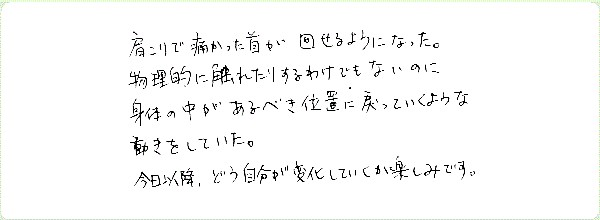 肩こりで痛かった首が回せるようになった。
物理的に触れたりするわけでもないのに
身体の中があるべき位置に戻っていくような
動きをしていた。
今日以降、どう自分が変化していくか楽しみです。